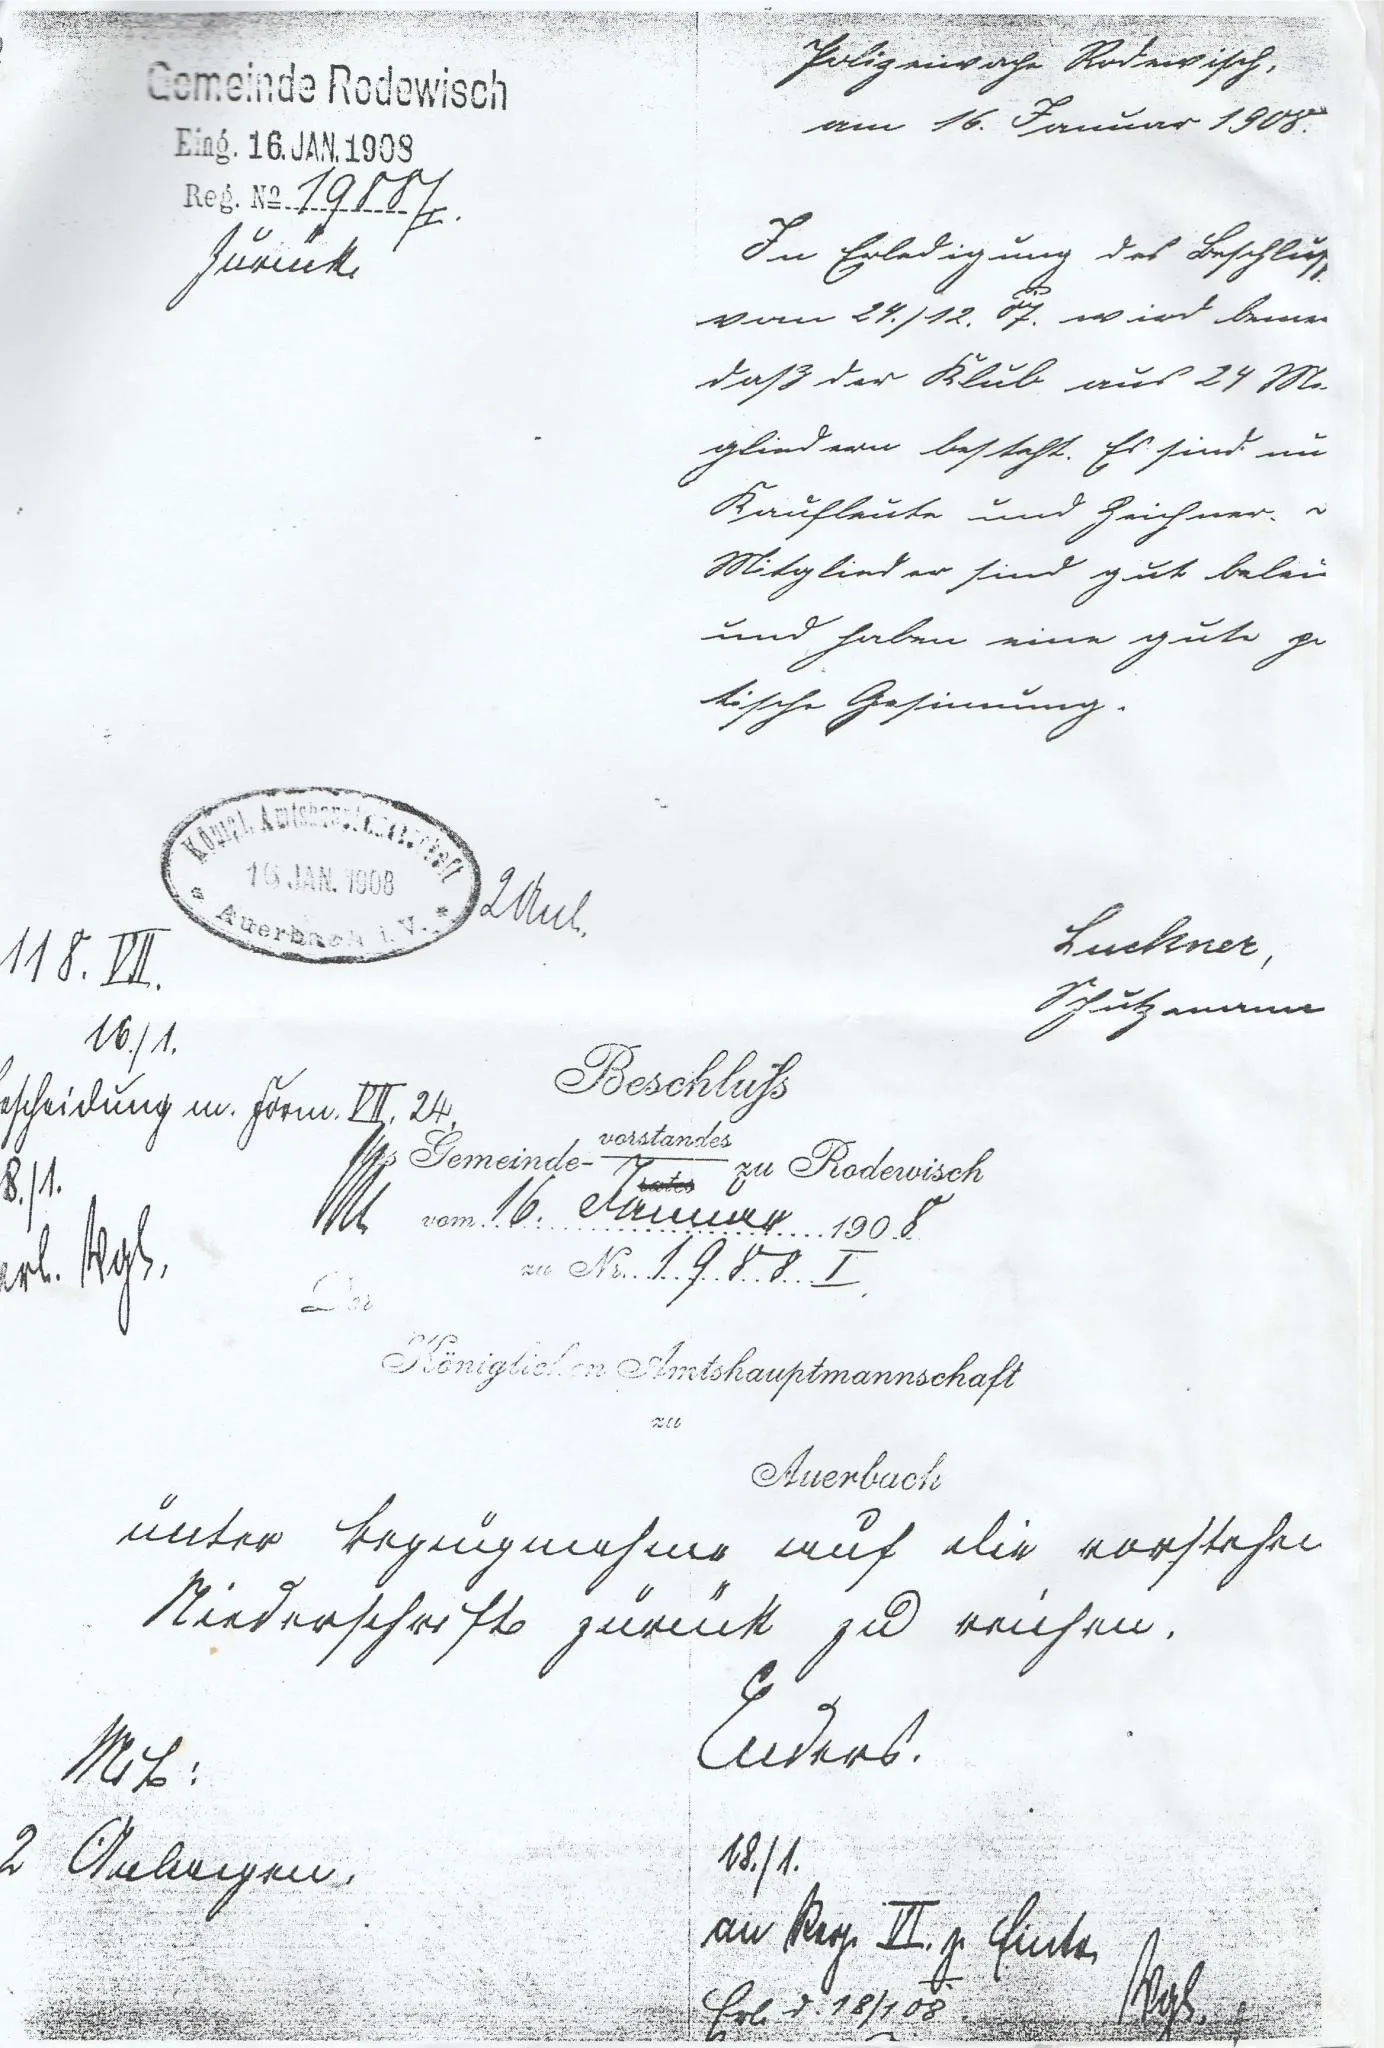 Gemeinde Rodewisch
Eing. 16. JAN. 1908
Reg. No 1988/I.
Zurück.
Polizeiwache Rodewisch,
am 16. Januar 1908.
In Erledigung des Beschluss
vom 24./12. 07. wird bemer
daß der Klub aus 24 Mi
gliedern besteht. Es sind nu
Kaufleute und Zeichner.
Mitglieder sind gut beleu
und haben eine gute po
tische Gesinnung.
Luckner,
Schutzmann
Königl. Amtshauptmannschaft
16 JAN. 1908
Auerbach i. V.
2 Anl.
118. VII.
16./1.
escheidung m. Form. VII. 24.
8./1.
erl.
Beschluss
des Gemeinde-vorstandes zu Rodewisch
vom 16. Januar 1908
zu Nr. 1988 I
Der
Königlichen Amtshauptmannschaft
zu
Auerbach
unter Bezugnahme auf die vorstehen
Niederschrift zurück zu reichen.
Enders.
Mit:
2 Anlagen.
18./1.
an Reg. VI. z.
Erl. d. 18/1 08.